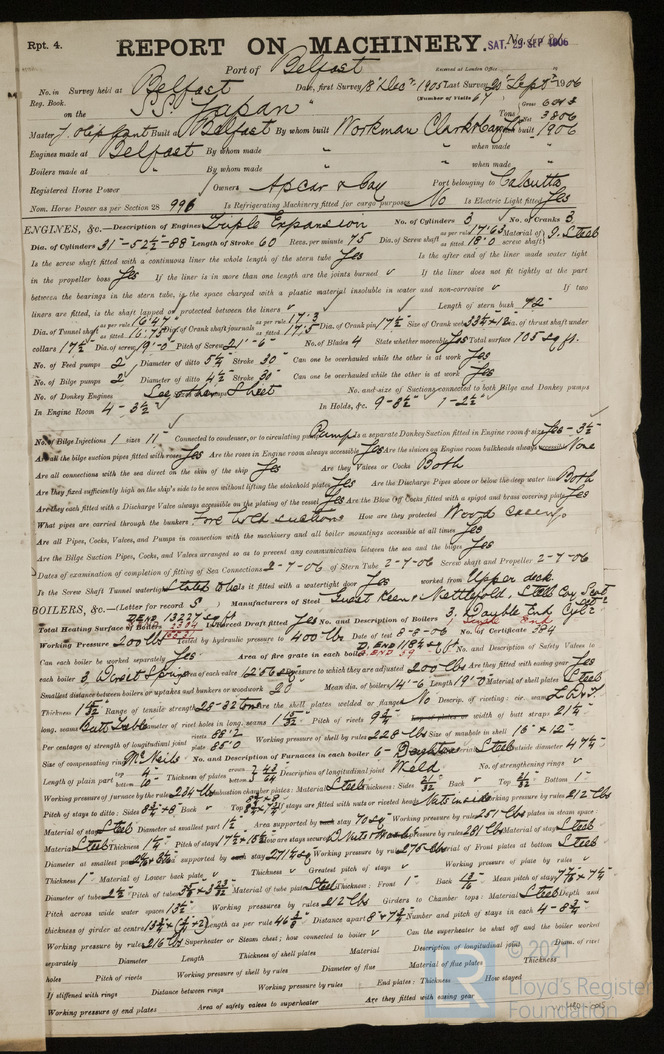 Rpt. 4.
REPORT ON MACHINERY.
SAT. 29 SEP 1906
Port of Belfast
Received at London Office
No. in Survey held at Belfast Date, first Survey 18th Decr 1905 Last Survey Septr 1906
Reg. Book. (Number of Visits 67
on the S.S. "Japan" Tons Gross 6013 Net 3806
Master J. Oliphant Built at Belfast By whom built Workman Clark & Co When built 1906
Engines made at Belfast By whom made " when made "
Boilers made at " By whom made " when made "
Registered Horse Power Owners Apcar & Coy Port belonging to Calcutta
Nom. Horse Power as per Section 28 996 Is Refrigerating Machinery fitted for cargo purposes No Is Electric Light fitted Yes
ENGINES, &c.—Description of Engines Triple Expansion No. of Cylinders 3 No. of Cranks 3
Dia. of Cylinders 31"-52½"-88 Length of Stroke 60 Revs. per minute 75 Dia. of Screw shaft as per rule 17.63 as fitted 18.0 Material of screw shaft I. Steel
Is the screw shaft fitted with a continuous liner the whole length of the stern tube Yes Is the after end of the liner made water tight
in the propeller boss Yes If the liner is in more than one length are the joints burned ✓ If the liner does not fit tightly at the part
between the bearings in the stern tube, is the space charged with a plastic material insoluble in water and non-corrosive ✓ If two
liners are fitted, is the shaft lapped or protected between the liners ✓ Length of stern bush 72"
Dia. of Tunnel shaft as per rule 16.47" as fitted 16.75" Dia. of Crank shaft journals as per rule 17.3 as fitted 17.5 Dia. of Crank pin 17½" Size of Crank webs 33½ x 12" Dia. of thrust shaft under
collars 17½" Dia. of screw 19'-0" Pitch of Screw 21'-6" No. of Blades 4 State whether moveable Yes Total surface 105 sq. ft.
No. of Feed pumps 2 Diameter of ditto 5½ Stroke 30" Can one be overhauled while the other is at work Yes
No. of Bilge pumps 2 Diameter of ditto 4½ Stroke 30" Can one be overhauled while the other is at work Yes
No. of Donkey Engines See other Sheet No. and size of Suctions connected to both Bilge and Donkey pumps
In Engine Room 4 - 3½" In Holds, &c. 9-3½" 1-2½"
No. of Bilge Injections 1 sizes 11" Connected to condenser, or to circulating pump Pump Is a separate Donkey Suction fitted in Engine room & size Yes - 3½"
Are all the bilge suction pipes fitted with roses Yes Are the roses in Engine room always accessible Yes Are the sluices on Engine room bulkheads always accessible None
Are all connections with the sea direct on the skin of the ship Yes Are they Valves or Cocks Both
Are they fixed sufficiently high on the ship's side to be seen without lifting the stokehold plates Yes Are the Discharge Pipes above or below the deep water line Both
Are they each fitted with a Discharge Valve always accessible on the plating of the vessel Yes Are the Blow Off Cocks fitted with a spigot and brass covering plate Yes
What pipes are carried through the bunkers Fore hold suctions How are they protected Wood casing
Are all Pipes, Cocks, Valves, and Pumps in connection with the machinery and all boiler mountings accessible at all times Yes
Are the Bilge Suction Pipes, Cocks, and Valves arranged so as to prevent any communication between the sea and the bilges Yes
Dates of examination of completion of fitting of Sea Connections 2-7-06 of Stern Tube 2-7-06 Screw shaft and Propeller 2-7-06
Is the Screw Shaft Tunnel watertight Stated to be Is it fitted with a watertight door Yes worked from Upper deck
BOILERS, &c.—(Letter for record S ) Manufacturers of Steel Guest Keen & Nettlefold, Steel Coy Scot
Total Heating Surface of Boilers D. END 13227 sq ft Is Forced Draft fitted Yes No. and Description of Boilers 3. Double End Cyl.
1 Single End
Working Pressure 200 lbs Tested by hydraulic pressure to 400 lbs Date of test 8-8-06 No. of Certificate 384
Can each boiler be worked separately Yes Area of fire grate in each boiler D. END 118½ sq ft No. and Description of Safety Valves to
each boiler 3 Direct Spring Area of each valve 12.56 Pressure to which they are adjusted 200 lbs Are they fitted with easing gear Yes
Smallest distance between boilers or uptakes and bunkers or woodwork 20" Mean dia. of boilers 14'-6 Length 19'.0" Material of shell plates Steel
Thickness Range of tensile strength 28-32 tons Are the shell plates welded or flanged No Descrip. of riveting: cir. seams
long. seams Butt Treble Diameter of rivet holes in long. seams 1 15/32" Pitch of rivets 9¾" Lap of plates or width of butt straps 21½"
Per centages of strength of longitudinal joint rivets 88.2 plate 85.0 Working pressure of shell by rules 228 lbs Size of manhole in shell 16" x 12"
Size of compensating ring McNeils No. and Description of Furnaces in each boiler 6 - Deighton Material Steel Outside diameter 47½"
Length of plain part top 4" bottom 10" Thickness of plates crown bottom 43/64 Description of longitudinal joint Weld No. of strengthening rings ✓
Working pressure of furnace by the rules 234 lbs Combustion chamber plates: Material Steel Thickness: Sides 21/32 Back ✓ Top 21/32 Bottom 1"
Pitch of stays to ditto: Sides 8¾ x 8 Back ✓ Top If stays are fitted with nuts or riveted heads Nuts inside Working pressure by rules 212 lbs
Material of stays Steel Diameter at smallest part 1½" Area supported by each stay 70 sq" Working pressure by rules 251 lbs End plates in steam space:
Material Steel Thickness 1¼" Pitch of stays 17½ x 15½ How are stays secured D. Nuts & Washers Working pressure by rules 281 lbs Material of stays Steel
Diameter at smallest part Area supported by each stay 271¼ sq" Working pressure by rules 275 lbs Material of Front plates at bottom Steel
Thickness 1" Material of Lower back plate ✓ Thickness ✓ Greatest pitch of stays ✓ Working pressure of plate by rules ✓
Diameter of tubes 2½" Pitch of tubes Material of tube plates Steel Thickness: Front 1" Back 13/16 Mean pitch of stays 7⅞ x 7½
Pitch across wide water spaces 13¾" Working pressures by rules 212 lbs Girders to Chamber tops: Material Steel Depth and
thickness of girder at centre Length as per rule 46⅜" Distance apart 8" & 7¾ Number and pitch of stays in each 4 - 8¾"
Working pressure by rules 216 lbs Superheater or Steam chest; how connected to boiler ✓ Can the superheater be shut off and the boiler worked
separately Diameter Length Thickness of shell plates Material Description of longitudinal joint Diam. of rivet
holes Pitch of rivets Working pressure of shell by rules Diameter of flue Material of flue plates Thickness
If stiffened with rings Distance between rings Working pressure by rules End plates: Thickness How stayed
Working pressure of end plates Area of safety valves to superheater Are they fitted with easing gear
© 2021
Lloyd's Register
Foundation